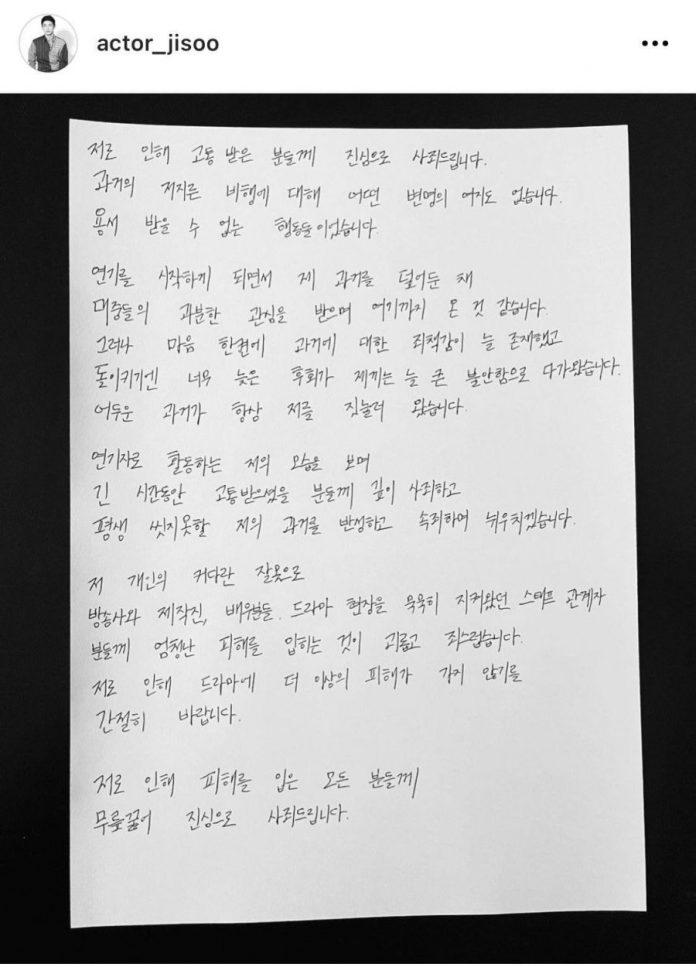 actor_jisoo
저로 인해 고통 받은 분들께 진심으로 사죄드립니다.
과거의 저지른 비행에 대해 어떤 변명의 여지도 없습니다.
용서 받을 수 없는 행동들이었습니다.
연기를 시작하게 되면서 제 과거를 덮어둔 채
대중들의 과분한 관심을 받으며 여기까지 온 것 같습니다.
그러나 마음 한켠에 과거에 대한 죄책감이 늘 존재했고
돌이키기엔 너무 늦은 후회가 제끼는 늘 큰 불안함으로 다가왔습니다.
어두운 과거가 항상 저를 짓눌러 왔습니다.
연기자로 활동하는 저의 모습을 보며
긴 시간동안 고통받으셨을 분들께 깊이 사죄하고
평생 씻지못할 저의 과거를 반성하고 속죄하며 뉘우치겠습니다.
저 개인의 커다란 잘못으로
방송사와 제작진, 배우분들, 드라마 현장을 묵묵히 지켜왔던 스태프 관계자
분들께 엄청난 피해를 입히는 것이 괴롭고 죄스럽습니다.
저로 인해 드라마에 더 이상의 피해가 가지 않기를
간절히 바랍니다.
저로 인해 피해를 입은 모든 분들께
무릎꿇어 진심으로 사죄드립니다.